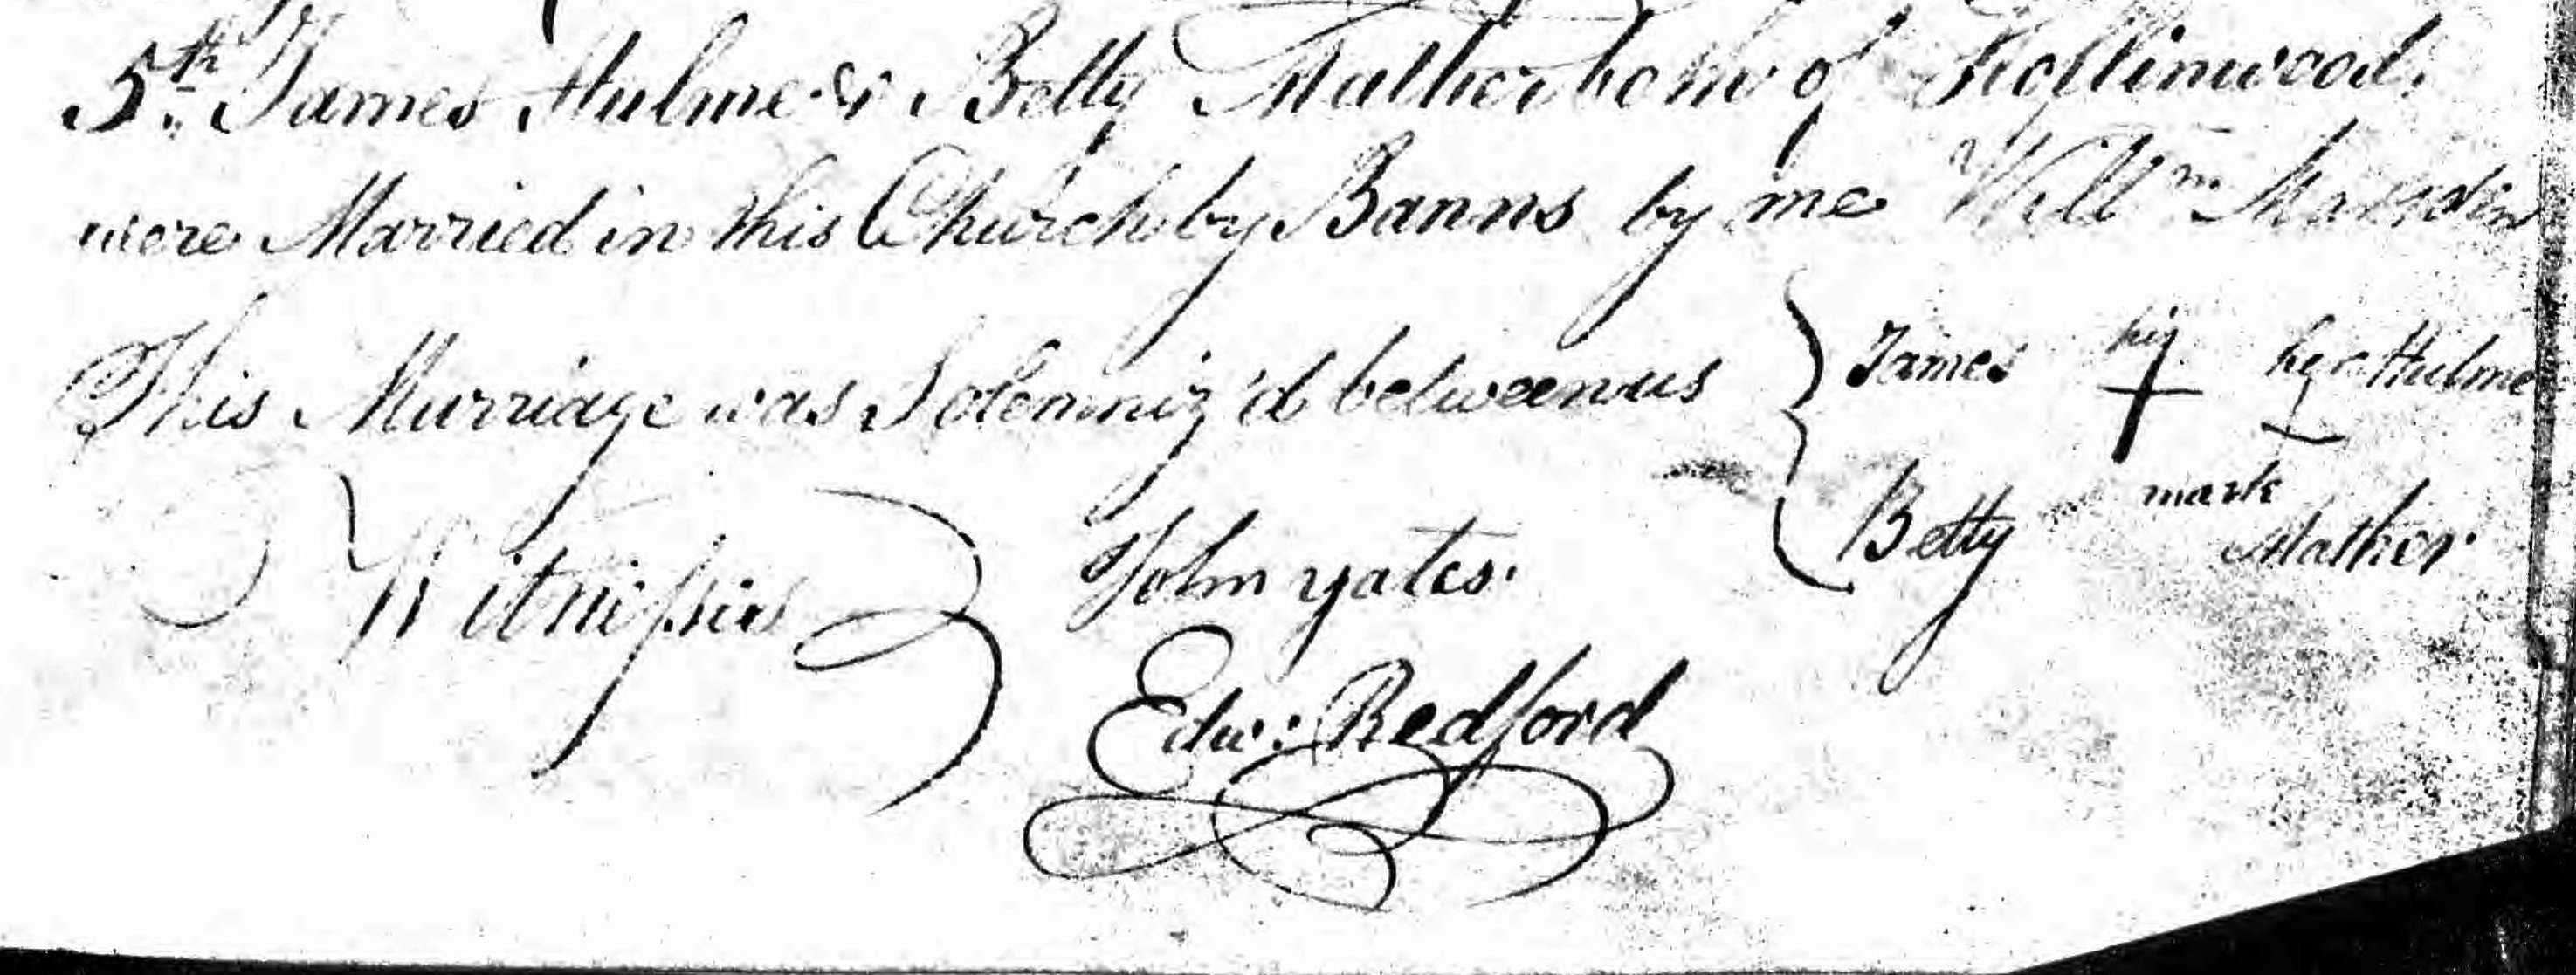 5th James Hulme & Betty Mather both of Hollinwood,
were Married in this Church by Banns by me Willm Marsden
This Marriage was Solemniz'd between us
James his Hulme
Betty mark Mather
Witnesses
John yates.
Edw: Redford